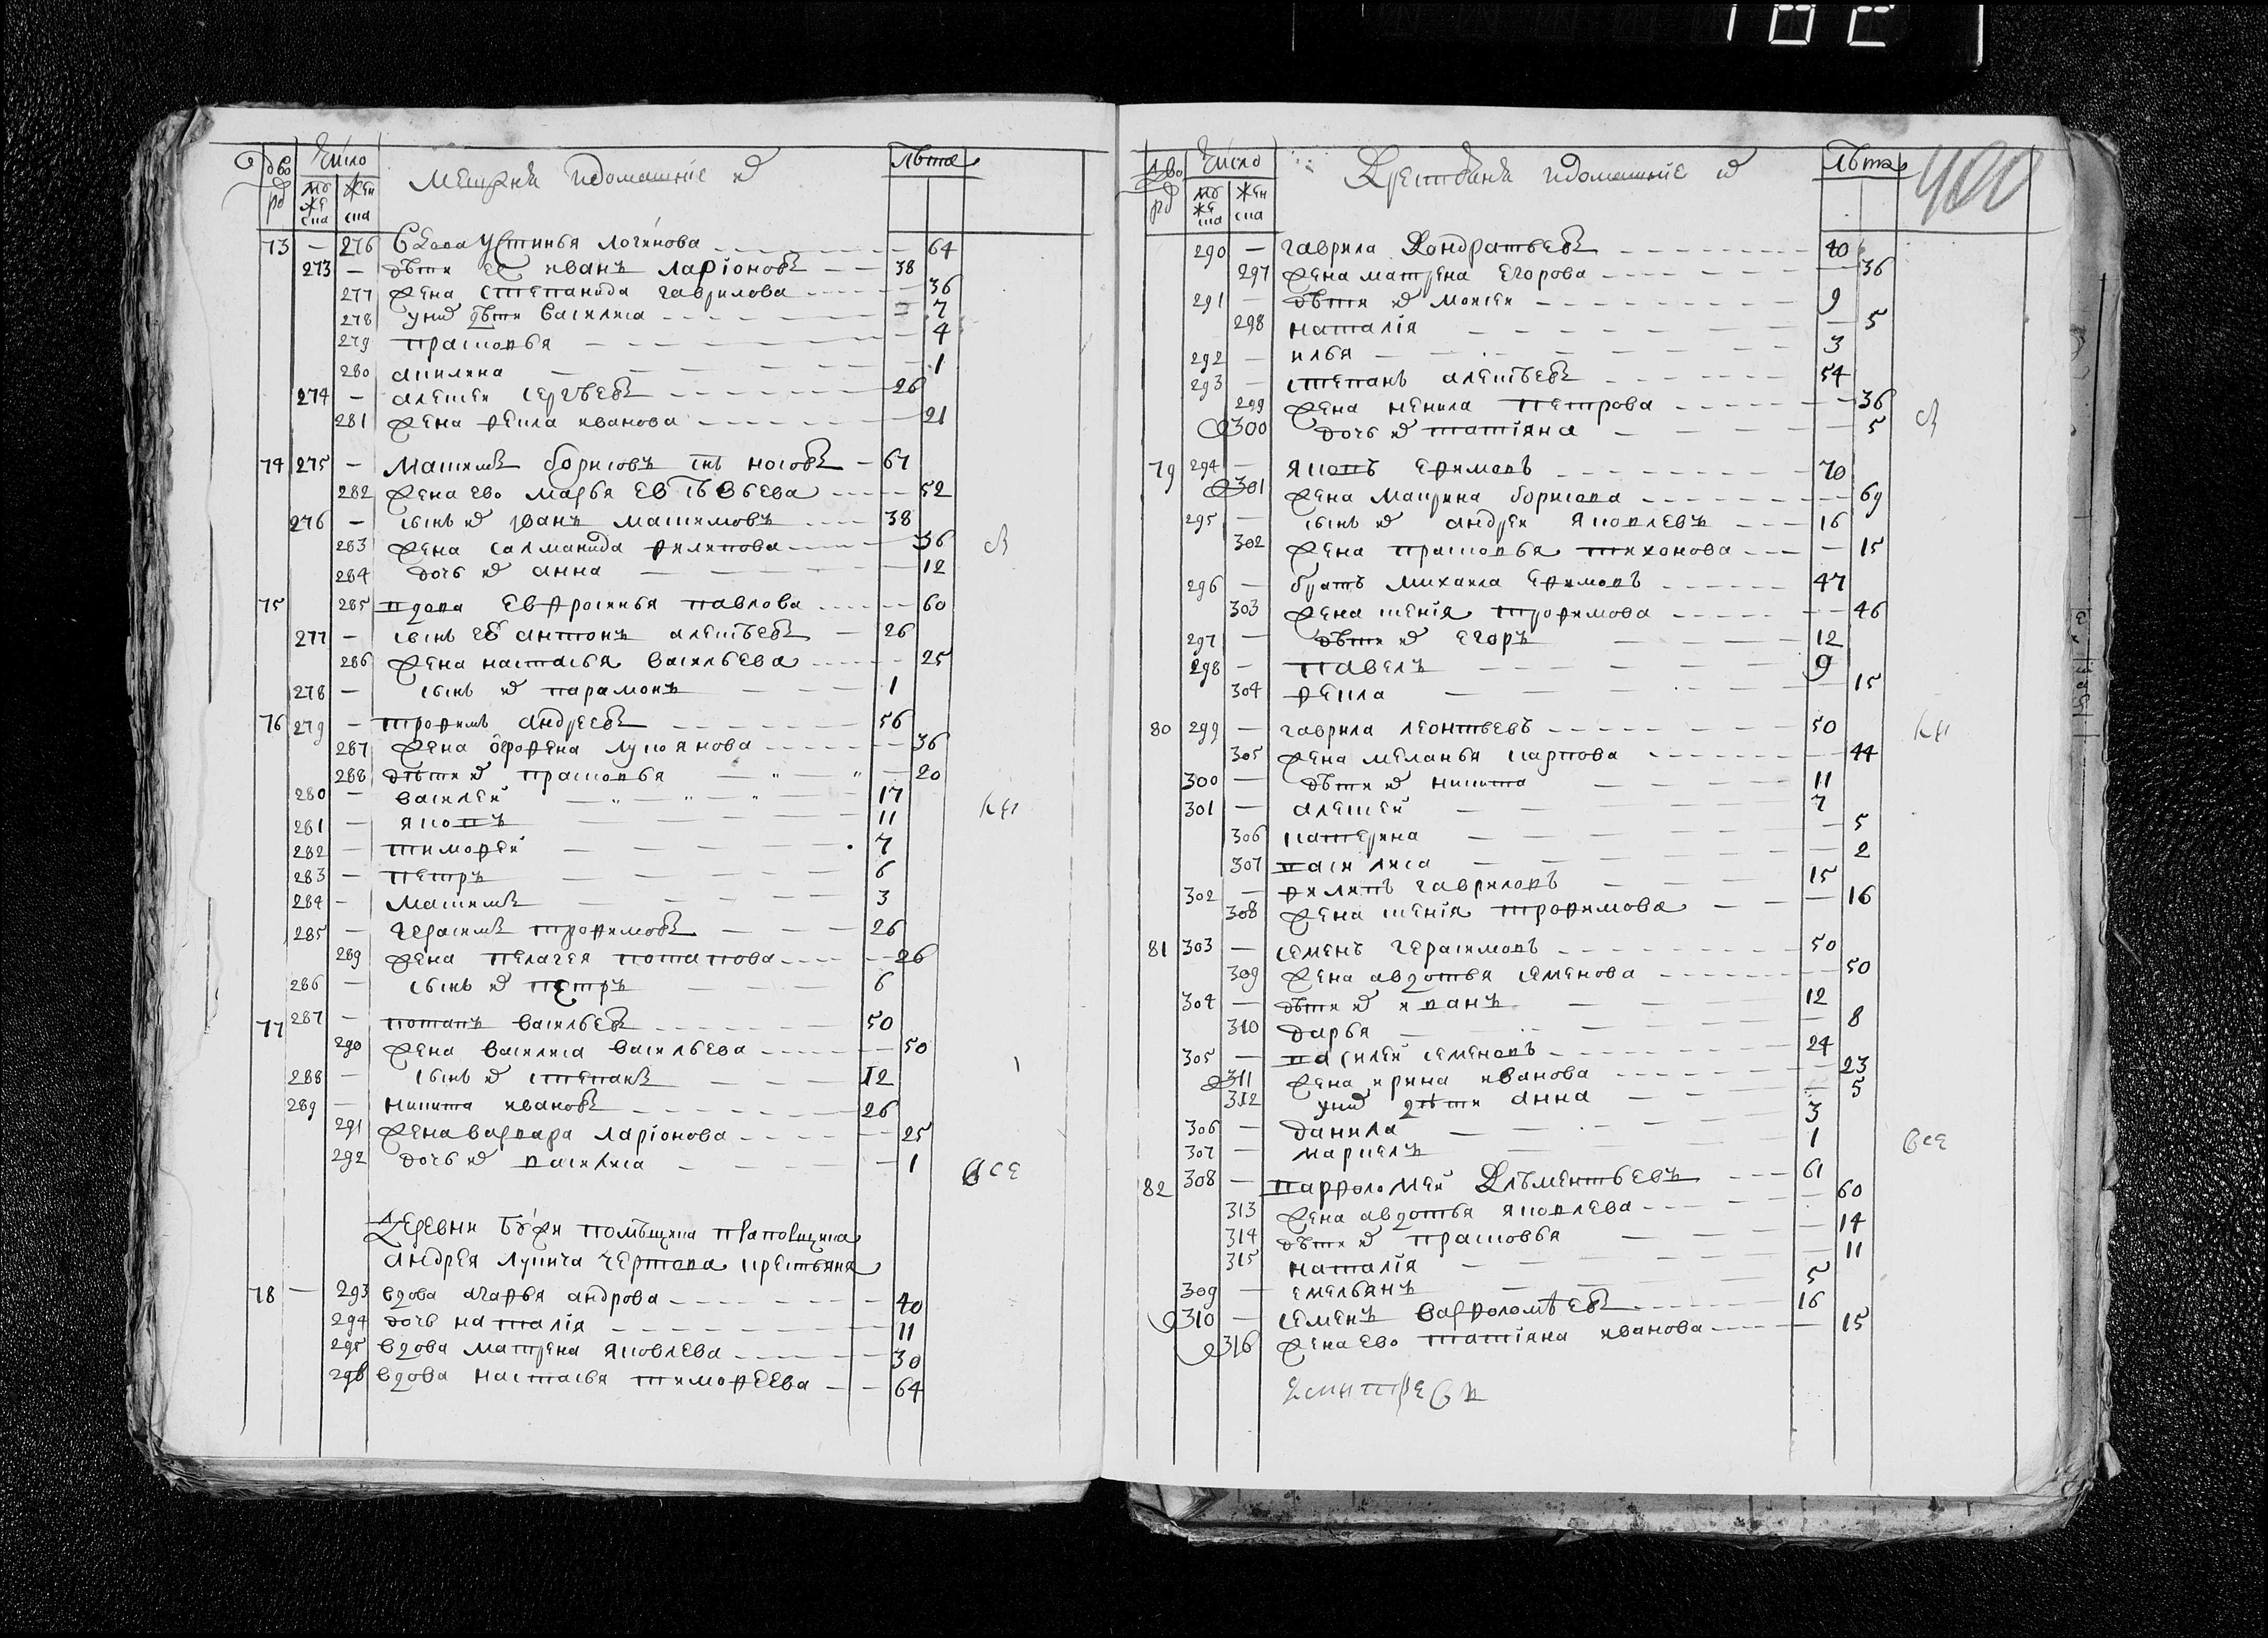 182
дво рд
Число
мужеска
женска
Мещеряки и домашние их
лѣта
73 — 276 вдова Устинья Логинова — 64
273 — дѣти ее Иванъ Ларіоновъ — 38
277 жена Степанида Гаврилова — 36
278 у них дѣти Василиса — 7
279 Прасковья — 4
280 Акилина — 1
274 — Алексеи Сергѣевъ — 26
281 жена Фекла Иванова — 21
74 275 — Максимъ Борисовъ снъ Носовъ — 67
282 жена ево Марья Евтѣвьева — 52
276 — сынъ их Иванъ Максимовъ — 38
283 жена Салманида Филипова — 36
284 дочь их Анна — 12
75 285 вдова Евфросинья Павлова — 60
277 — сынъ еѣ Антонъ Алексѣевъ — 26
286 жена Настасья Васильева — 25
278 — сынъ их Парамонъ — 1
76 279 — Трофимъ Андреевъ — 56
287 жена Офрофена Лукоянова — 36
288 дѣти их Прасковья — 20
280 — Василей — 17
281 — Яковъ — 11
282 — Тимофей — 7
283 — Петръ — 6
284 — Максимъ — 3
285 — Герасимъ Трофимовъ — 26
289 жена Пелагея Потапова — 26
286 — сынъ их Петръ — 6
77 287 — Потапъ Васильевъ — 50
290 жена Василиса Васильева — 50
288 — сынъ их Степанъ — 12
289 — Никита Ивановъ — 26
291 жена Варвара Ларіонова — 25
292 дочь их Василиса — 1
все
Деревни помѣщика
Андрея Лукича Чертова крестьяня
78 — 293 вдова Агафья Андрова — 40
294 дочь Наталія — 11
295 вдова Матрена Яковлева — 30
296 вдова Настасья Тимофеева — 64
дво рд
Число
мужеска
женска
Крестьяня и домашние их
лѣта
400
290 — Гаврила Кондратьевъ — 40
297 жена Матрена Егорова — 36
291 — дѣти их Моисеи — 9
298 Наталія — 5
292 — Илья — 3
293 — Степанъ Алексѣевъ — 54
299 жена Ненила Петрова — 36
300 дочь их Татіяна — 5
79 294 — Яковъ Ефимовъ — 70
301 жена Маврина Борисова — 69
295 — сынъ их Андреи Яковлевъ — 16
302 жена Прасковья Тихонова — 15
296 — братъ Михаила Ефимовъ — 47
303 жена Ксенія Трофимова — 46
297 — дѣти их Егоръ — 12
298 — Павелъ — 9
304 Фекла — 15
80 299 — Гаврила Леонтьевъ — 50
305 жена Меланья Карпова — 44
300 — дѣти их Никита — 11
301 — Алексей — 7
306 Катерина — 5
307 Василиса — 2
302 — Филипъ Гавриловъ — 15
308 жена Ксенія Трофимова — 16
81 303 — Семенъ Герасимовъ — 50
309 жена Авдотья Семенова — 50
304 — дѣти их Иванъ — 12
310 Дарья — 8
305 — Василей Семеновъ — 24
311 жена Ирина Иванова — 23
312 у них дѣти Анна — 5
306 — Данила — 3
307 — Маркелъ — 1
все
82 308 — Варфоломей Клѣментьевъ — 61
313 жена Авдотья Яковлева — 60
314 дѣти их Прасковья — 14
315 Наталія — 11
309 — Емельянъ — 5
310 — Семенъ Варфоломѣевъ — 16
316 жена ево Татіяна Иванова — 15